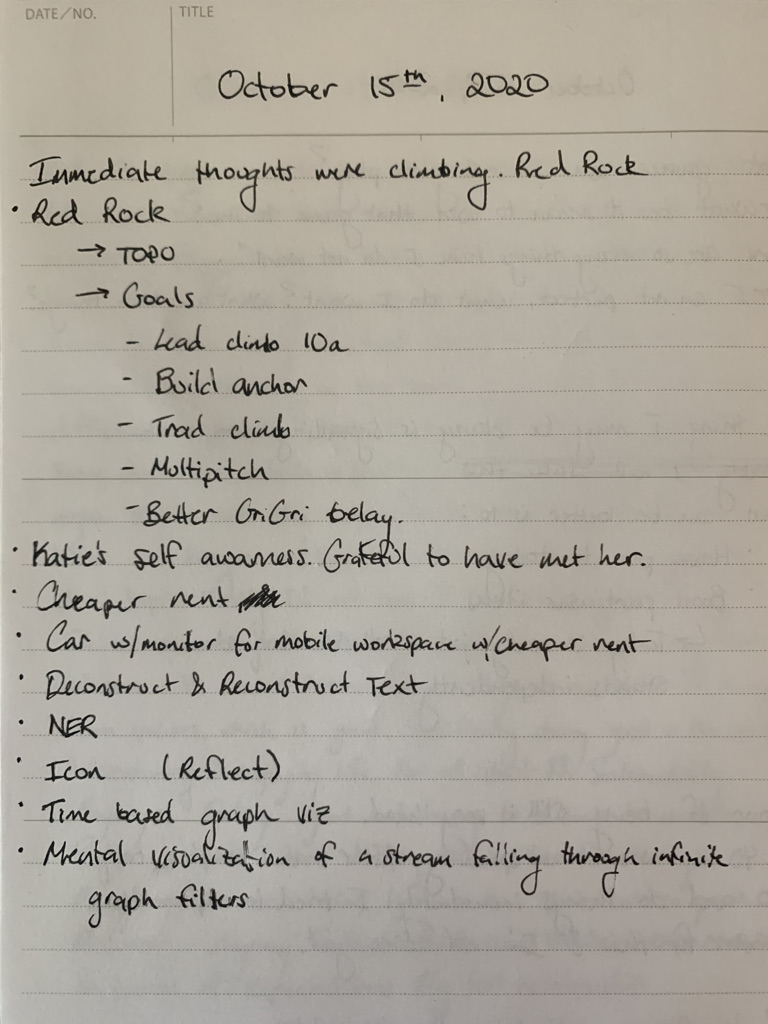 DATE/NO.
TITLE
October 15th, 2020
Immediate thoughts were climbing. Red Rock
• Red Rock
→ TOPO
→ Goals
- Lead climb 10a
- Build anchor
- Trad climb
- Multipitch
- Better GriGri belay.
• Katie's self awarness. Grateful to have met her.
• Cheaper rent
• Car w/monitor for mobile workspace w/cheaper rent
• Deconstruct & Reconstruct Text
• NER
• Icon (Reflect)
• Time based graph viz
• Mental visualization of a stream falling through infinite
graph filters